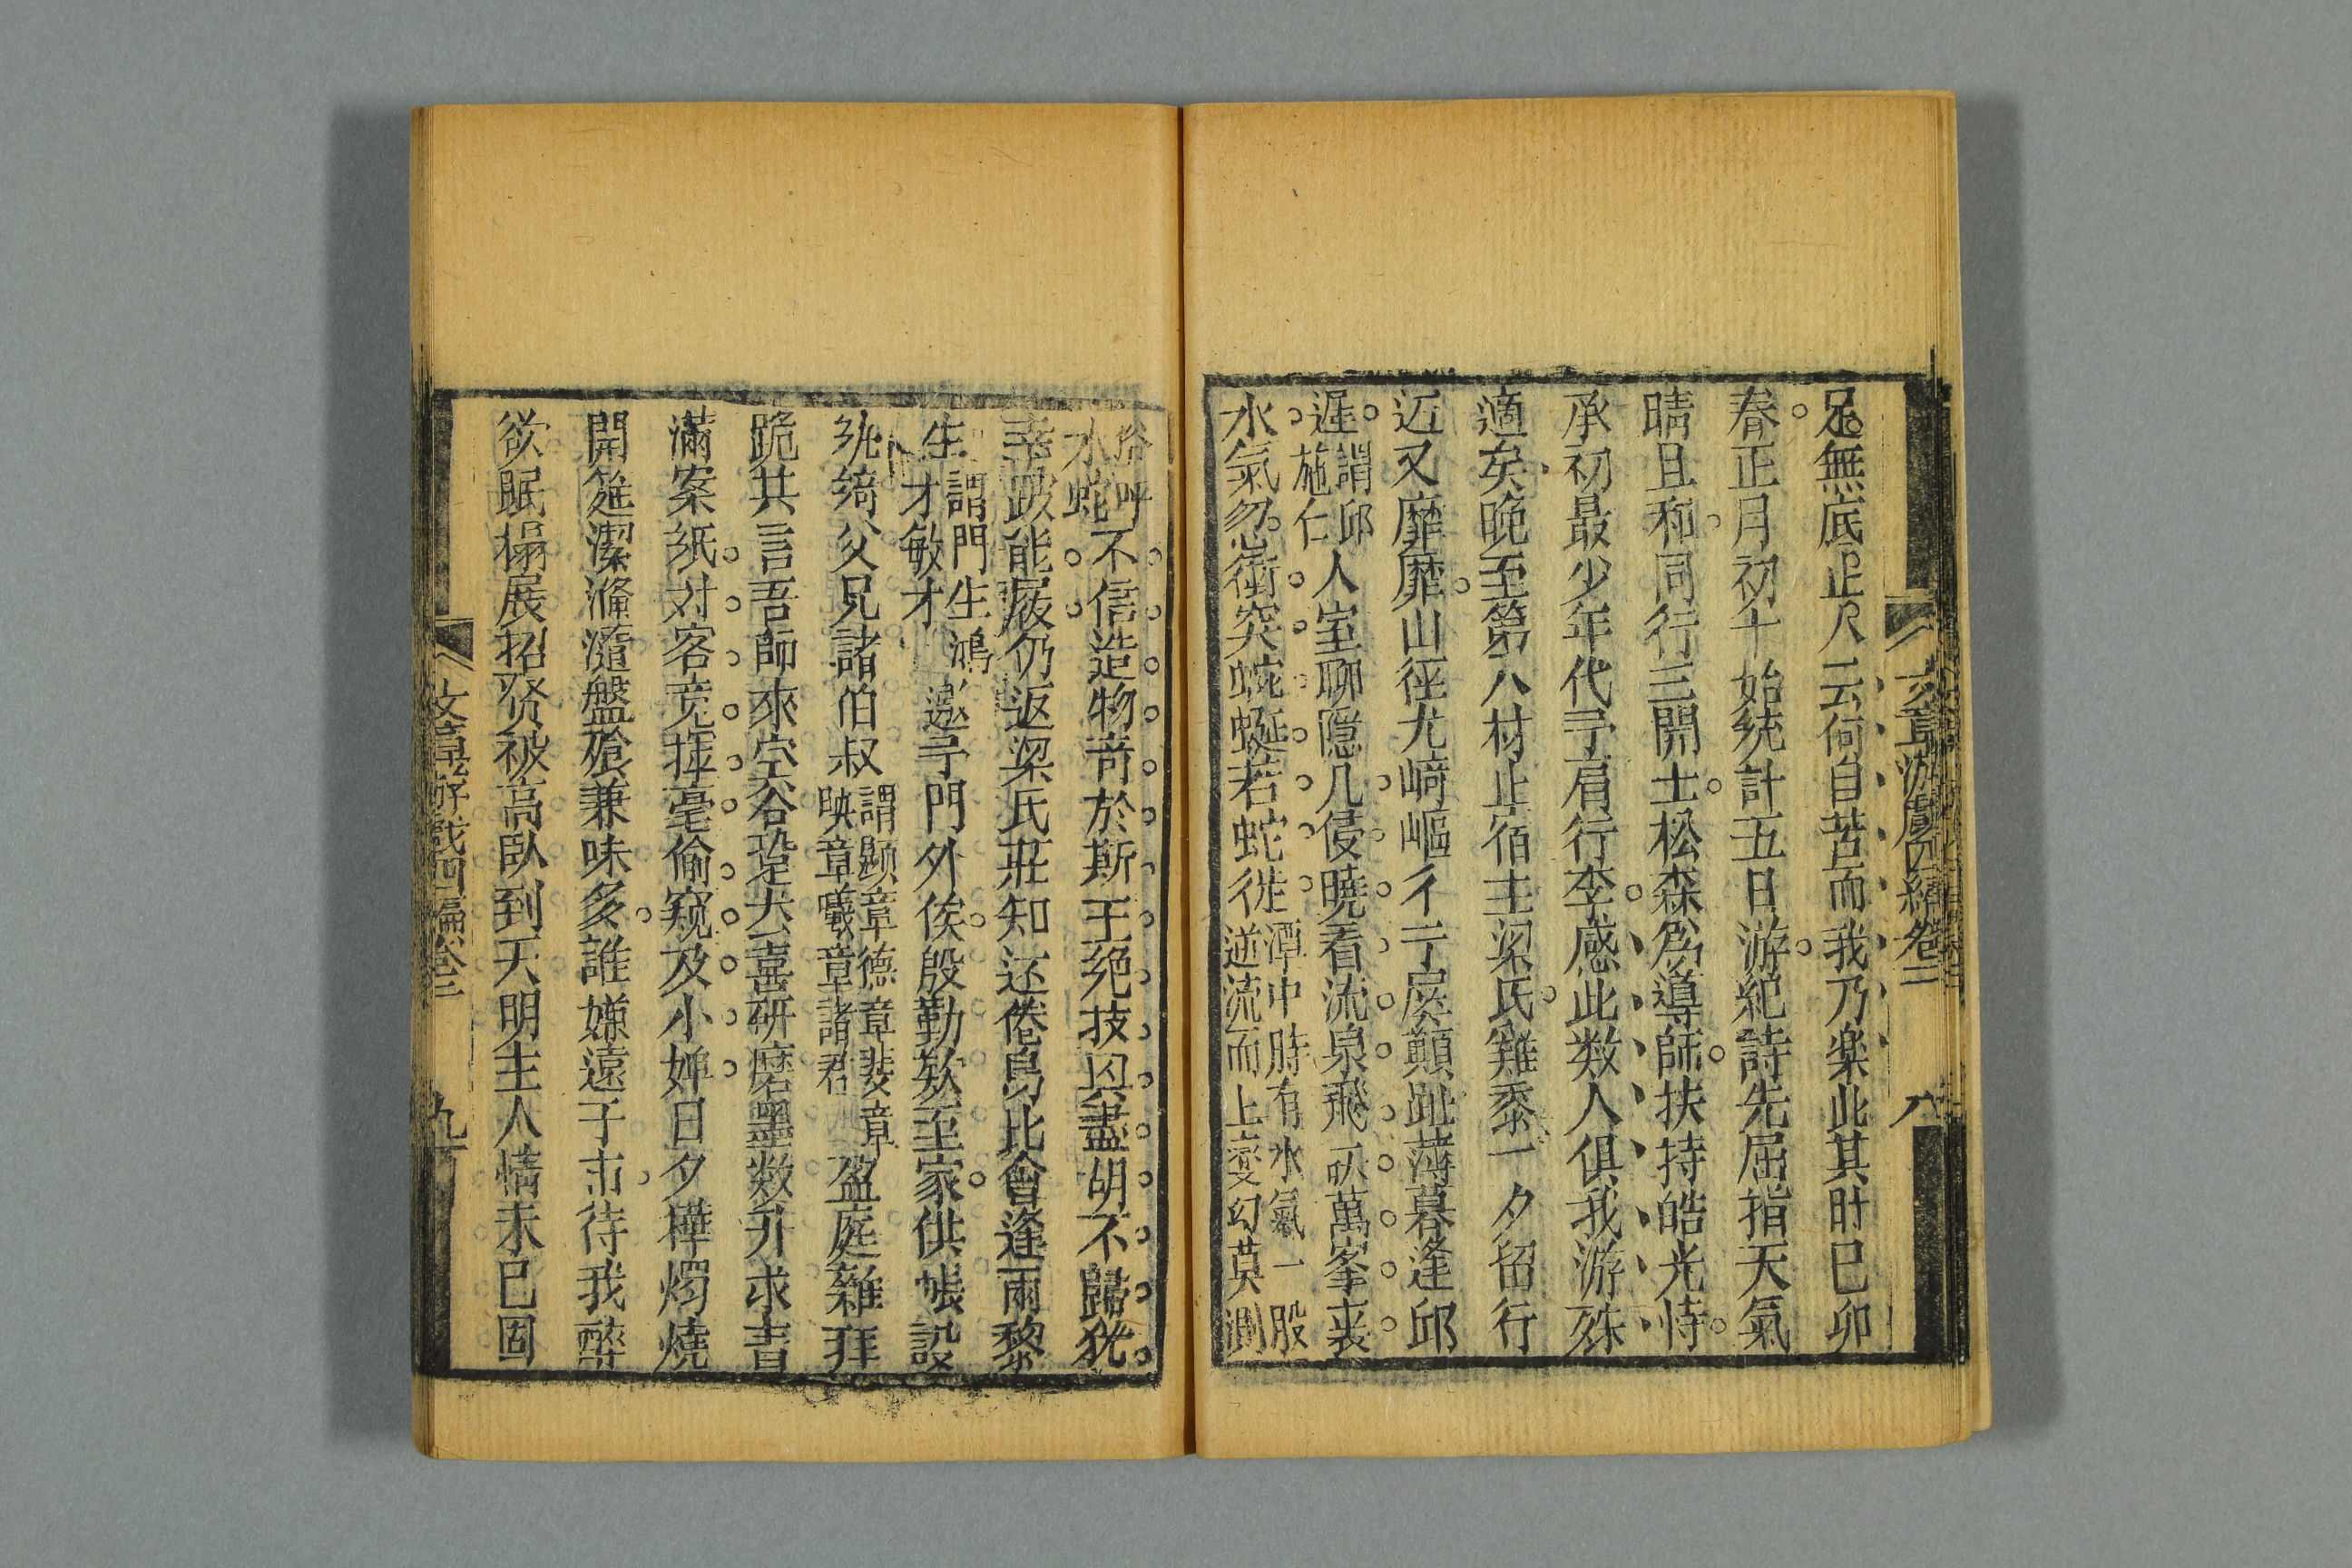 足無底止尺云何自苦而我乃楽此其旹巳卯
春正月初十始統計五日游紀詩先屈指天氣
晴且和同行三開士松森為導師扶持皓光恃
承初最少年代予肩行李感此数人俱我游殊
適矣晚至第八村止宿主梁氏雞黍一夕留行
近又靡靡山徑尤﨑嶇彳亍屐顛趾薄暮逢邱
遲謂邱施仁人室聊隱几侵曉看流泉飛砅萬峯裏
水氣勿衝突蜿蜒若蛇徙潭中時有水氣一股逆流而上变幻莫測
俗呼水蛇不信造物竒於斯王絕技具盡胡不歸犹
幸跛能屐仍返梁氏莊知还倦鳥比會逢雨黎
生謂門生鴻才敏才邀予門外俟殷勤欵至家供帳設
紈綺父兄諸伯叔謂顯章德章斐章映章曦章諸君盈庭雜拜
跪共言吾師來空谷跫大喜研磨墨数升求書
滿案紙对客竞揮毫偷窺及小婢日夕樺燭燒
開筵潔滫瀡盤飱兼味多誰嫌遠子市待我醉
欲眠榻展招贤被高臥到天明主人情未已固